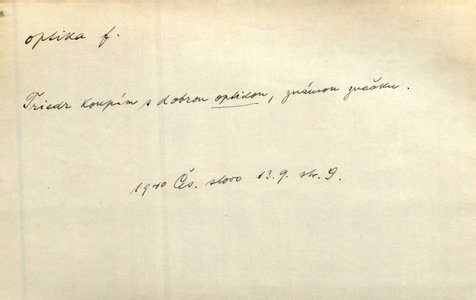 optika f.
Triedr koupím s dobrou optikou, známou značku.
1940 Čes. slovo 13.9. str. 9.